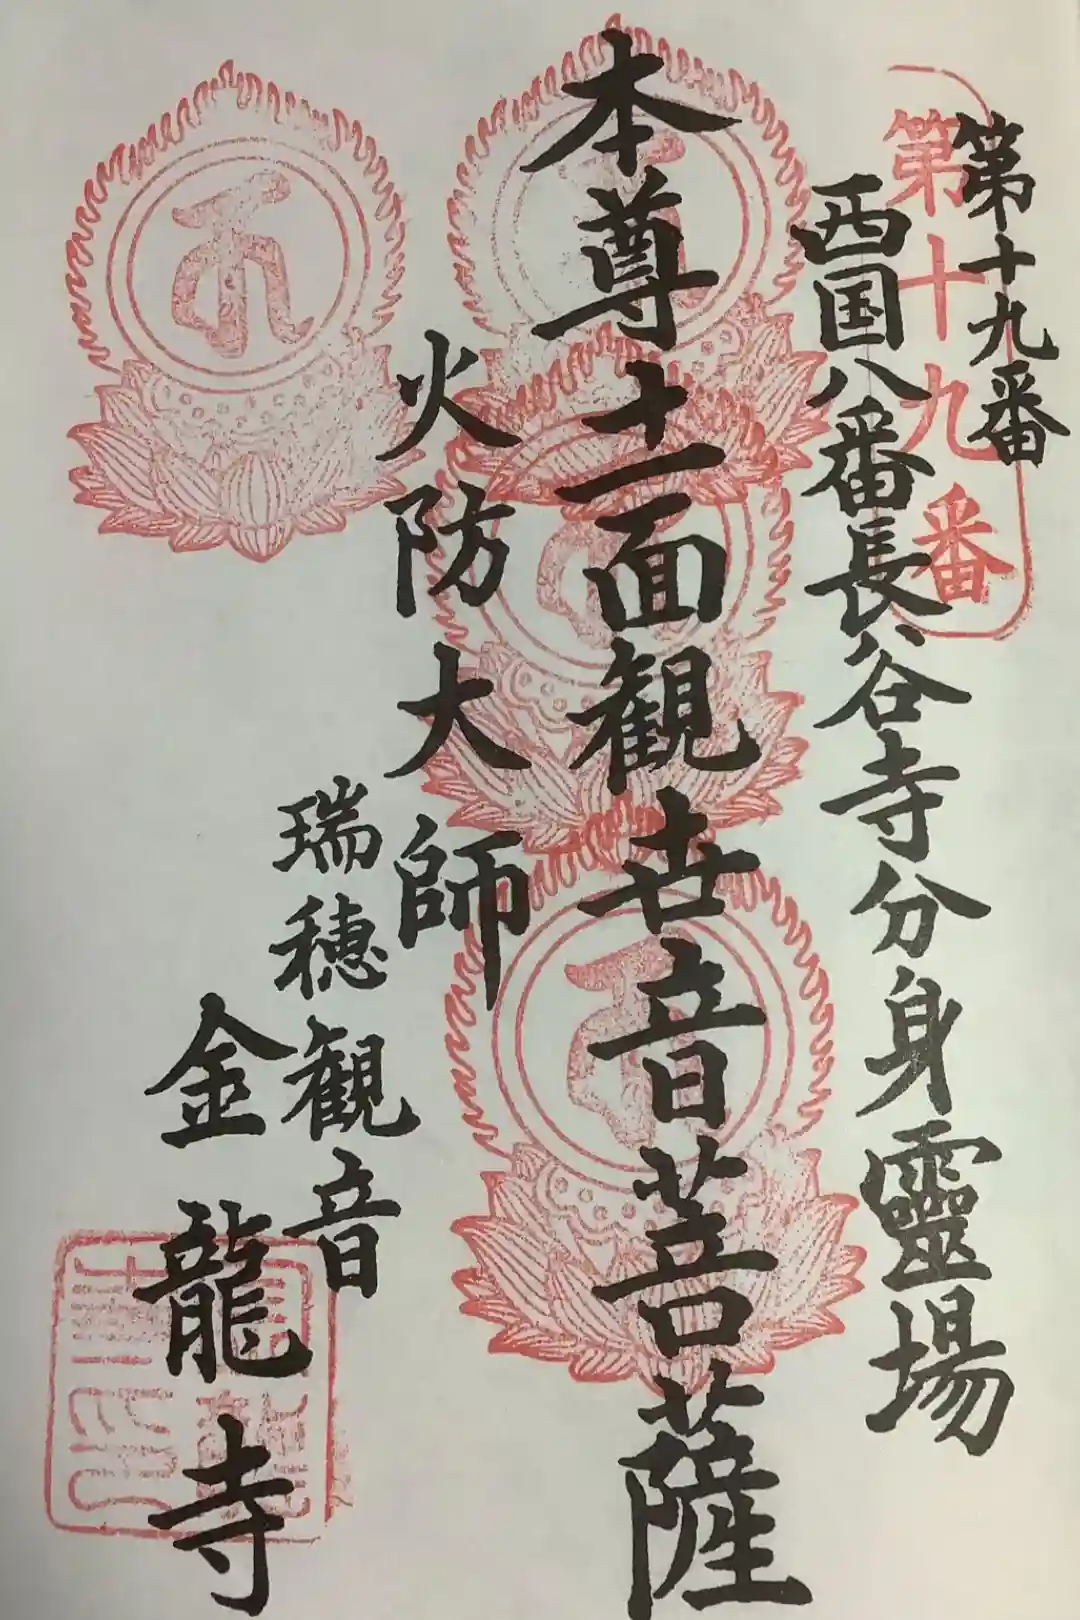 第十九番
第十九番
西国八番長谷寺分身靈場
本尊十一面観世音菩薩
火防大師
瑞穂観音
金龍寺